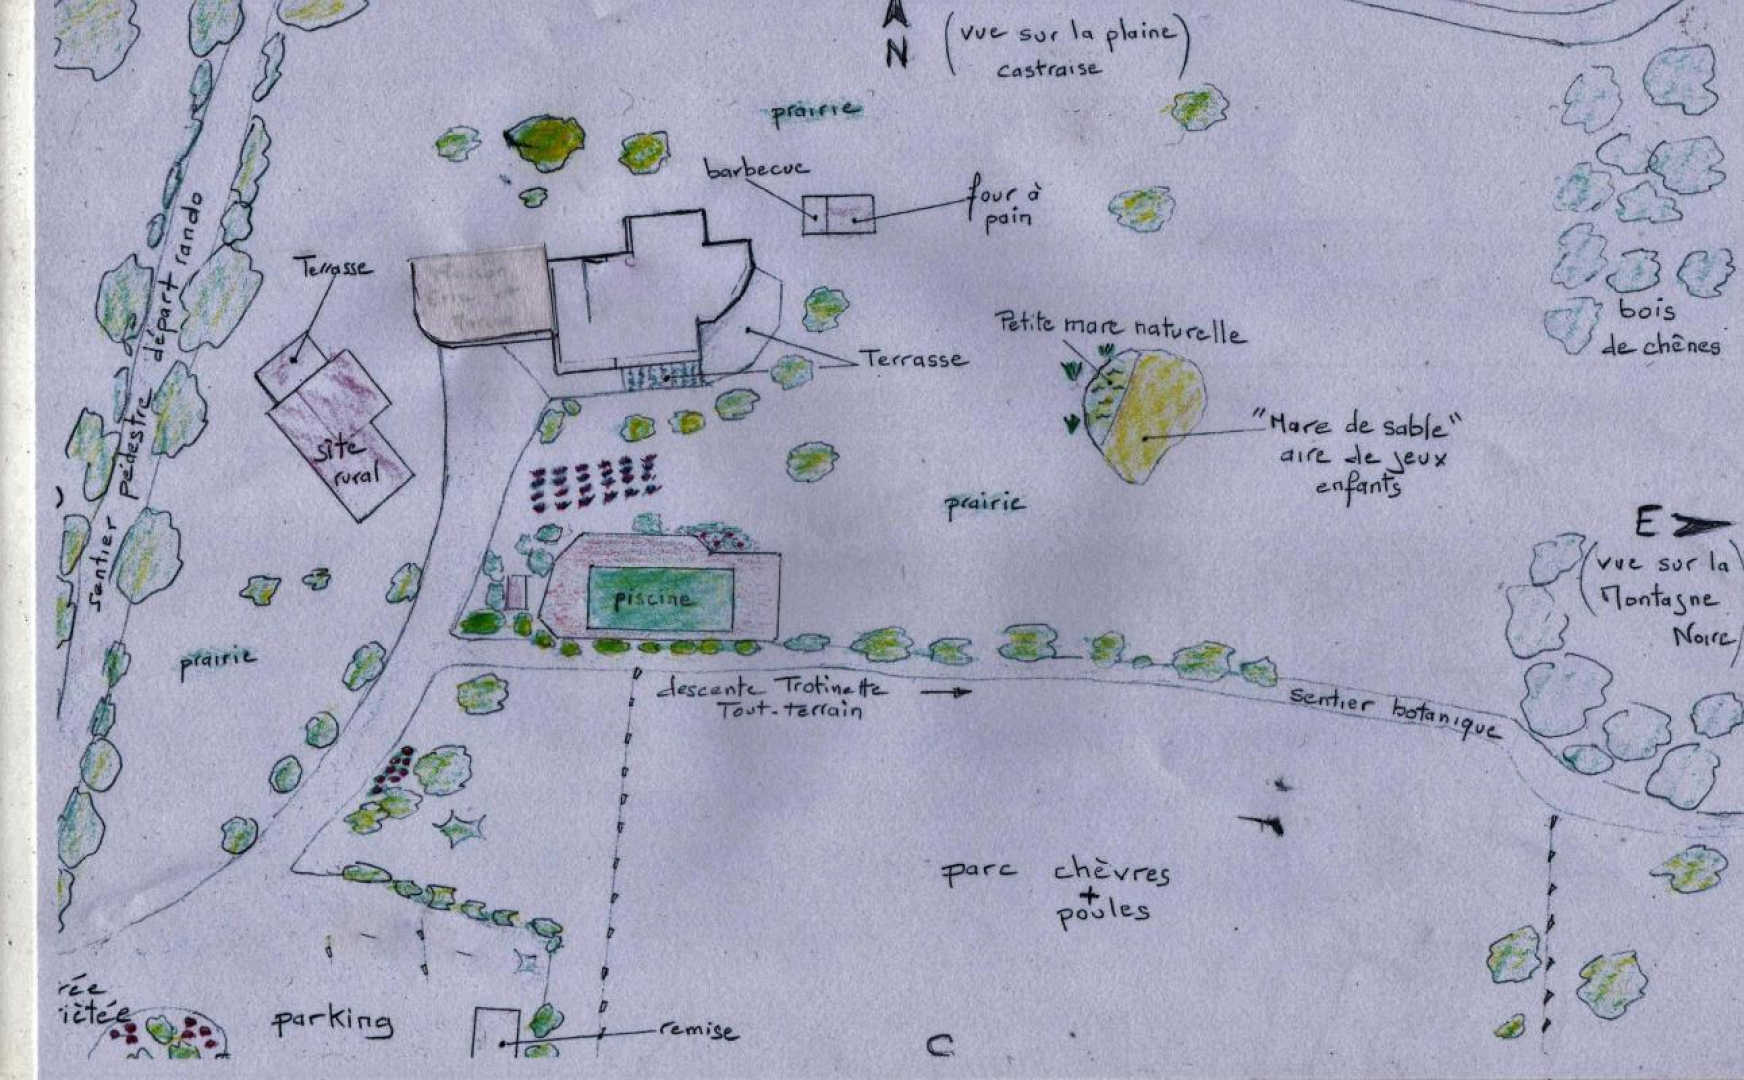 N
(vue sur la plaine
castraise)
prairie
barbecue
four à
pain
Terrasse
départ rando
Petite mare naturelle
bois
de chênes
Terrasse
"Mare de sable"
aire de jeux
enfants
site
rural
pédestre
sentier
prairie
E
(vue sur la
Montagne
Noire)
piscine
prairie
descente Trotinette
Tout-terrain
sentier botanique
parc chèvres
+
poules
rée
iétée
parking
remise